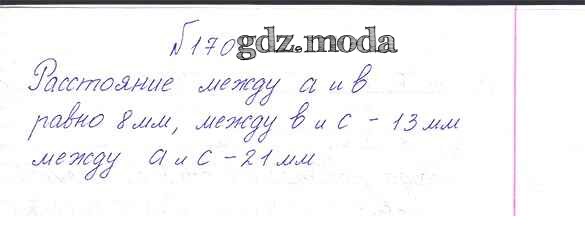 №170 gdz.moda
Расстояние между a и b
равно 8 мм, между b и c - 13 мм
между a и c - 21 мм